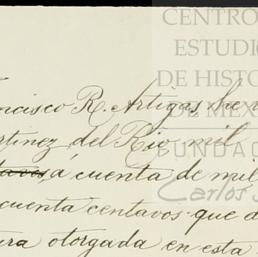 CENTRO
ESTUDI
DE HISTO
DE MÉXI
FUNDAC
Carlos S
ncisco R. Artigas he
rtinez del Rio, mil
tavos á cuenta de mil
cuenta centavos que
ura otorgada en esta